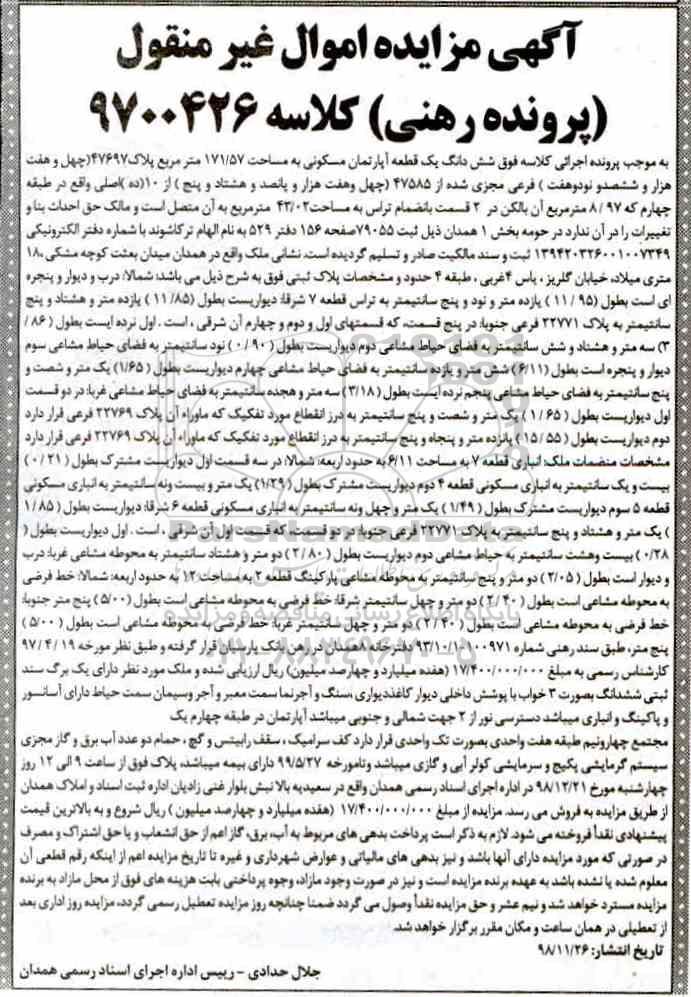 آگهی مزایده اموال غیر منقول
(پرونده رهنی) کلاسه ۹۷۰۰۴۲۶
به موجب پرونده اجرائی کلاسه فوق شش دانگ یک قطعه آپارتمان مسکونی به مساحت ۱۷۱/۵۷ متر مربع پلاک ۴۷۶۹۷(چهل و هفت
هزار و ششصدو نودوهفت ) فرعی مجزی شده از ۴۷۵۸۵ (چهل وهفت هزار و پانصد و هشتاد و پنج ) از ۱۰(ده )اصلی واقع در طبقه
چهارم که ۹۷ / ۸ مترمربع آن بالکن در ۲ قسمت بانضمام تراس به مساحت۴۳/۰۲ مترمربع به آن متصل است و مالک حق احداث بنا و
تغییرات را در آن ندارد در حومه بخش ۱ همدان ذیل ثبت ۷۹۰۵۵صفحه ۱۵۶ دفتر ۵۲۹ به نام الهام ترکاشوند با شماره دفتر الکترونیکی
۱۳۹۴۲۰۳۲۶۰۰۱۰۰۷۳۴۹ ثبت و سند مالکیت صادر و تسلیم گردیده است. نشانی ملک واقع در همدان میدان بعثت کوچه مشکی،۱۸
متری میلاد، خیابان گلریز ، یاس ۴غربی ، طبقه ۴ حدود و مشخصات پلاک ثبتی فوق به شرح ذیل می باشد؛ شمالا: درب و دیوار و پنجره
ای است بطول (۹۵ / ۱۱ ) یازده متر و نود و پنج سانتیمتر به تراس قطعه ۷ شرقا: دیواریست بطول (۸۵/ ۱۱ ) یازده متر و هشتاد و پنج
سانتیمتر به پلاک ۲۲۷۷۱ فرعی جنوبا: در پنج قسمت، که قسمتهای اول و دوم و چهارم آن شرقی ، است . اول نرده ایست بطول ( ۸۶ /
۳) سه متر و هشتاد و شش سانتیمتر به فضای حیاط مشاعی دوم دیواریست بطول ( ۹۰ / ۰ ) نود سانتیمتر به فضای حیاط مشاعی سوم
دیوار و پنجره است بطول (۶/۱۱ ) شش متر و یازده سانتیمتر به فضای حیاط مشاعی چهارم دیواریست بطول (۱/۶۵ ) یک متر و شصت و
پنج سانتیمتر به فضای حیاط مشاعی پنجم نرده ایست بطول (۳/۱۸ ) سه متر و هجده سانتیمتر به فضای حیاط مشاعی غربا: در دو قسمت
اول دیواریست بطول ( ۶۵ / ۱ ) یک متر و شصت و پنج سانتیمتر به درز انقطاع مورد تفکیک که ماوراء آن پلاک ۲۲۷۶۹ فرعی قرار دارد
دوم دیواریست بطول ( ۵۵ / ۱۵ ) پانزده متر و پنجاه و پنج سانتیمتر به درز انقطاع مورد تفکیک که ماوراء آن پلاک ۲۲۷۶۹ فرعی قرار دارد
مشخصات منضمات ملک: انباری قطعه ۷ به مساحت ۶/۱۱ به حدود اربعه: شمالا: در سه قسمت اول دیواریست مشترک بطول (۲۱ / ۰ )
بیست و یک سانتیمتر به انباری مسکونی قطعه ۴ دوم دیواریست مشترک بطول (۱/۲۹) یک متر و بیست ونه سانتیمتر به انباری مسکونی
قطعه ۵ سوم دیواریست مشترک بطول (۱/۴۹ ) یک متر و چهل ونه سانتیمتر به انباری مسکونی قطعه ۶ شرقا: دیواریست بطول ( ۸۵/ ۱
) یک متر و هشتاد و پنج سانتیمتر به پلاک ۲۲۷۷۱ فرعی جنوبا: در دو قسمت که قسمت اول آن شرقی ، است . اول دیواریست بطول (
۰/۲۸ ) بیست وهشت سانتیمتر به حیاط مشاعی دوم دیواریست بطول ( ۸۰ / ۲ ) دو متر و هشتاد سانتیمتر به محوطه مشاعی غربا: درب
و دیوار است بطول ( ۲/۰۵ ) دو متر و پنج سانتیمتر به محوطه مشاعی پارکینگ قطعه ۲ به مساحت ۱۲ به حدود اربعه: شمالا: خط فرضی
به محوطه مشاعی است بطول ( ۴۰ / ۲ ) دو متر و چهل سانتیمتر شرقا: خط فرضی به محوطه مشاعی است بطول (۵/۰۰) پنج متر جنوبا:
خط فرضی به محوطه مشاعی است بطول ( ۴۰ / ۲ ) دو متر و چهل سانتیمتر غربا: خط فرضی به محوطه مشاعی است بطول ( ۵/۰۰ )
پنج متر، طبق سند رهنی شماره ۱۰۰۹۷۱-۹۳/۱۰/۱ دفترخانه ۸همدان در رهن بانک پارسیان قرار گرفته و طبق نظر مورخه ۱۹ / ۴ / ۹۷
کارشناس رسمی به مبلغ ۱۷/۴۰۰/۰۰۰/۰۰۰ (هفده میلیارد و چهارصد میلیون) ریال ارزیابی شده و ملک مورد نظر دارای یک برگ سند
ثبتی ششدانگ بصورت ۳ خواب با پوشش داخلی دیوار کاغذدیواری ،سنگ و آجرنما سمت معبر و آجر وسیمان سمت حیاط دارای آسانسور
و پاکینگ و انباری میباشد دسترسی نور از ۲ جهت شمالی و جنوبی میباشد آپارتمان در طبقه چهارم یک
مجتمع چهارونیم طبقه هفت واحدی بصورت تک واحدی قرار دارد کف سرامیک ، سقف رابیتس و گچ ، حمام دو عدد آب برق و گاز مجزی
سیستم گرمایشی پکیج و سرمایشی کولر آبی و گازی میباشد وتامورخه ۹۹/۵/۲۷ دارای بیمه میباشد، پلاک فوق از ساعت ۹ الی ۱۲ روز
چهارشنبه مورخ ۹۸/۱۲/۲۱ در اداره اجرای اسناد رسمی همدان واقع در سعیدیه بالا نبش بلوار غنی زادیان اداره ثبت اسناد و املاک همدان
از طریق مزایده به فروش می رسد. مزایده از مبلغ ۱۷/۴۰۰/۰۰۰/۰۰۰ (هفده میلیارد و چهارصد میلیون ) ریال شروع و به بالاترین قیمت
پیشنهادی نقداً فروخته می شود. لازم به ذکر است پرداخت بدهی های مربوط به آب، برق، گاز اعم از حق انشعاب و یا حق اشتراک و مصرف
در صورتی که مورد مزایده دارای آنها باشد و نیز بدهی های مالیاتی و عوارض شهرداری و غیره تا تاریخ مزایده اعم از اینکه رقم قطعی آن
معلوم شده یا نشده باشد به عهده برنده مزایده است و نیز در صورت وجود مازاد، وجوه پرداختی بابت هزینه های فوق از محل مازاد به برنده
مزایده مسترد خواهد شد و نیم عشر و حق مزایده نقداً وصول می گردد ضمنا چنانچه روز مزایده تعطیل رسمی گردد، مزایده روز اداری بعد
از تعطیلی در همان ساعت و مکان مقرر برگزار خواهد شد.
تاریخ انتشار: ۹۸/۱۱/۲۶
جلال حدادی - رییس اداره اجرای اسناد رسمی همدان
ParsNamadData
پایگاه اطلاع رسانی مناقصه و مزایده
۰۲۱-۸۸۳۴۹۶۷۰-۵